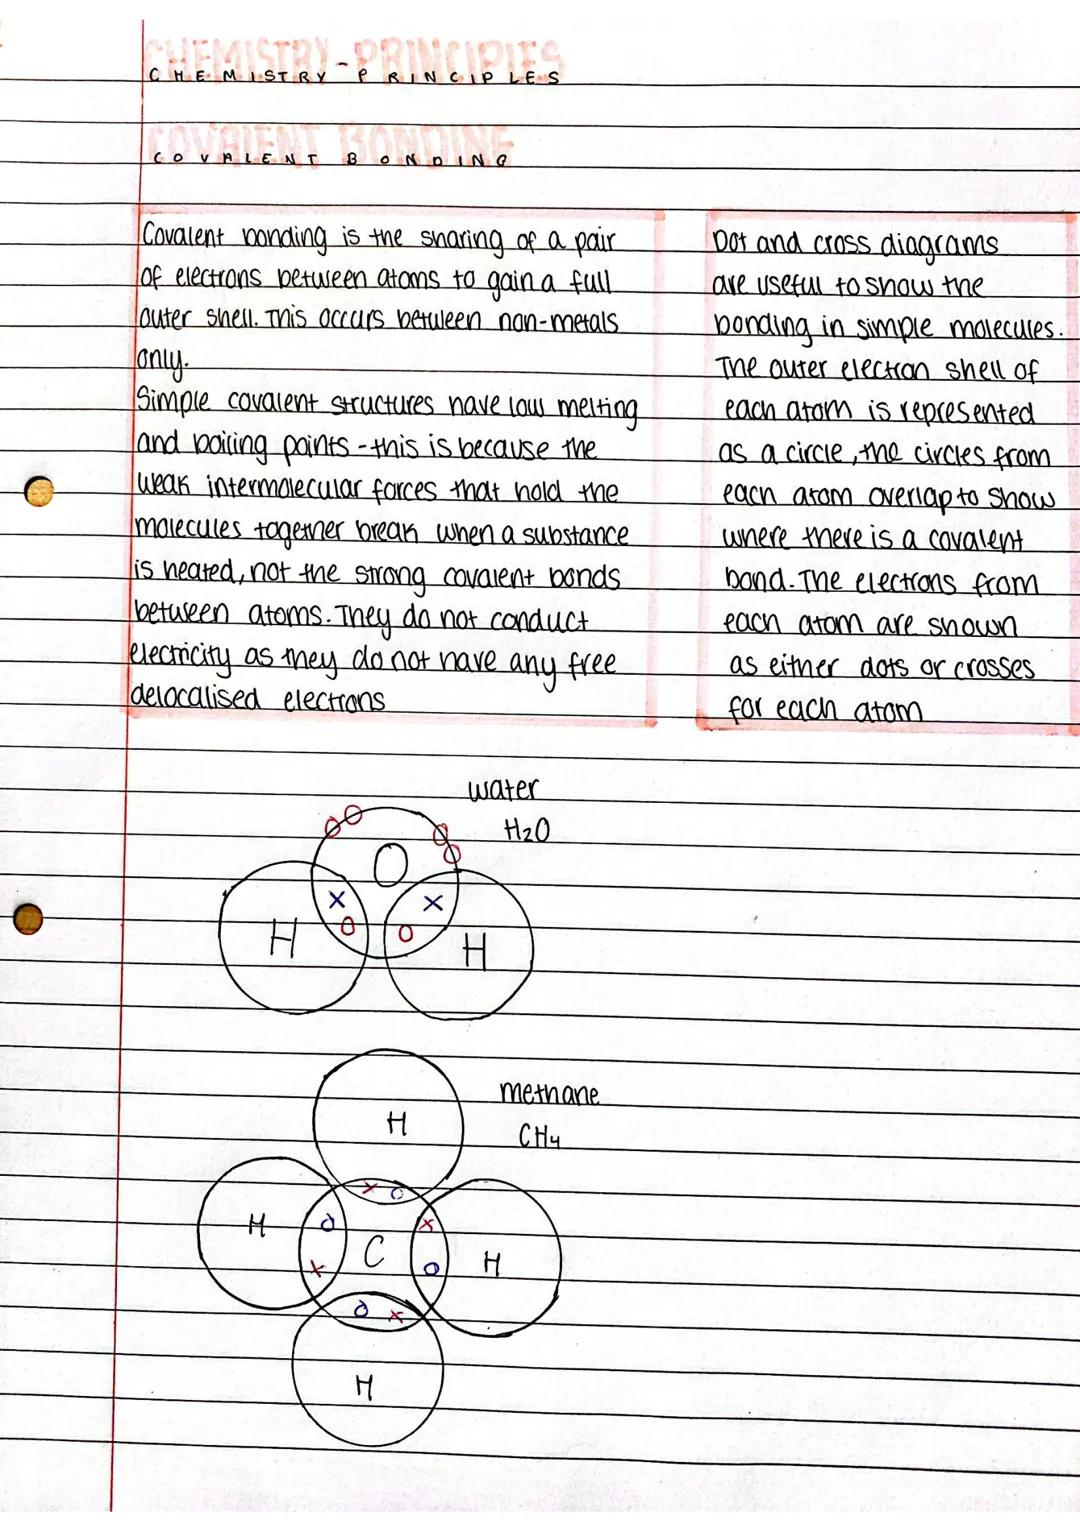 CHEMISTRY-PRINCIPLES
CHEMISTRY-PRINCIPLES
COVALENT BONDING
COVALENT BONDING
Covalent bonding is the sharing of a pair
of electrons between atoms to gain a full
outer shell. This occurs between non-metals
only.
Simple covalent structures have low melting
and boiling points - this is because the
weak intermolecular forces that hold the
molecules together break when a substance
is heated, not the strong covalent bonds
between atoms. They do not conduct
electricity as they do not have any free
delocalised electrons
Dot and cross diagrams
are useful to show the
bonding in simple molecules.
The outer electron shell of
each atom is represented
as a circle, the circles from
each atom overlap to show
where there is a covalent
bond. The electrons from
each atom are shown
as either dots or crosses
for each atom
water
H₂O
O
H
H
methane
CH₄
H
H
C
H
H